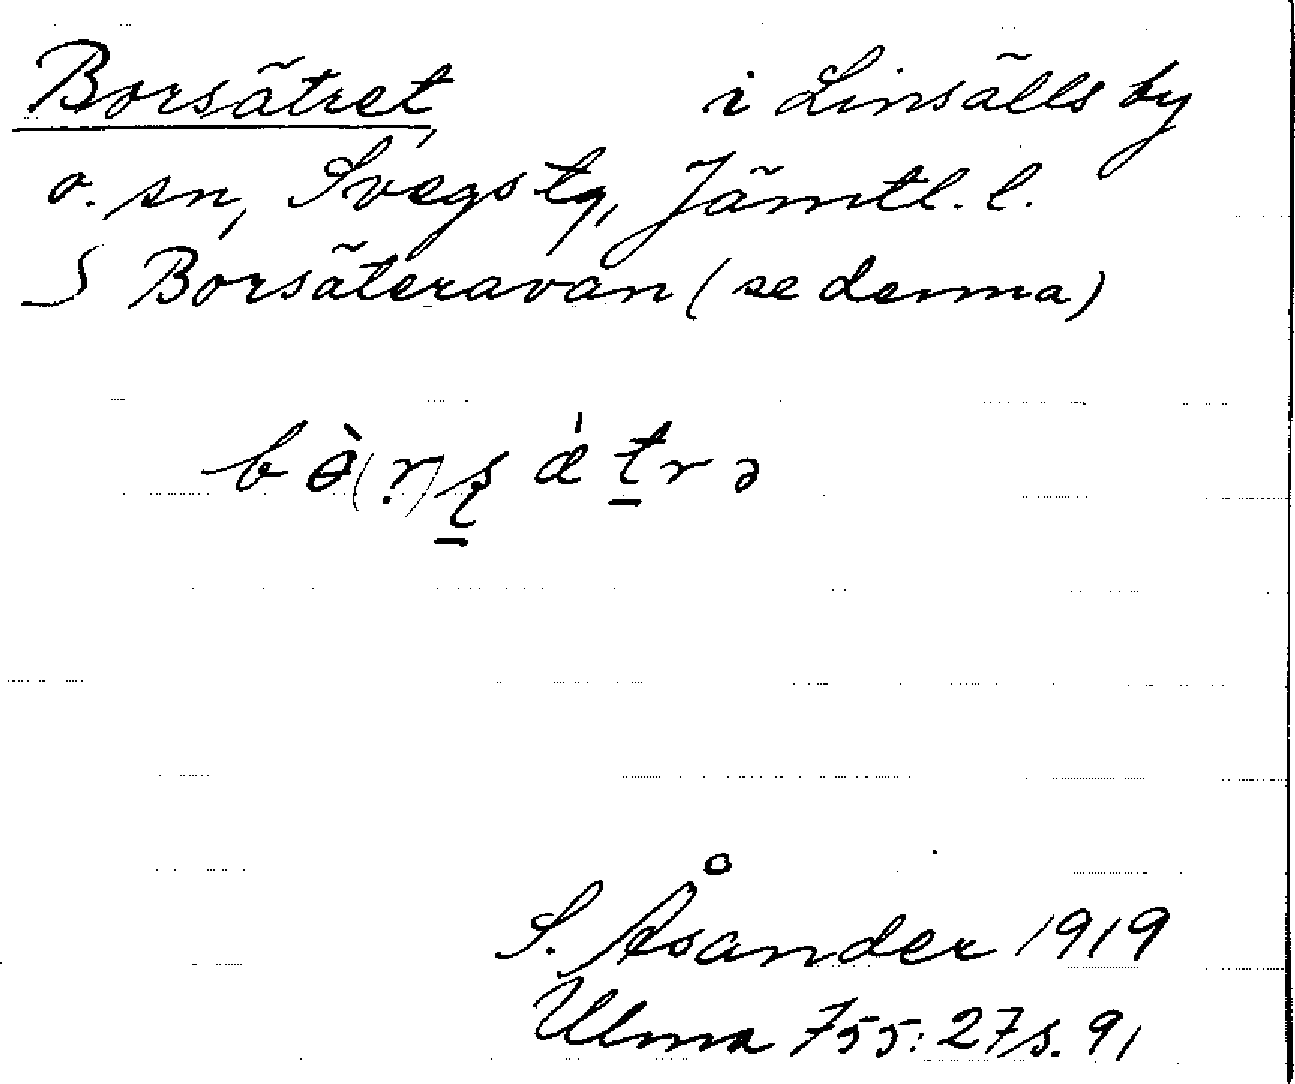 Borsätret, i Linsälls by
o. sn, Svegs tg, Jämtl. l.
S Borsäteravan (se denna)
bɵ̀(r)ʂǽtrə
S. Åsander 1919
Ulma 755:27 s. 91